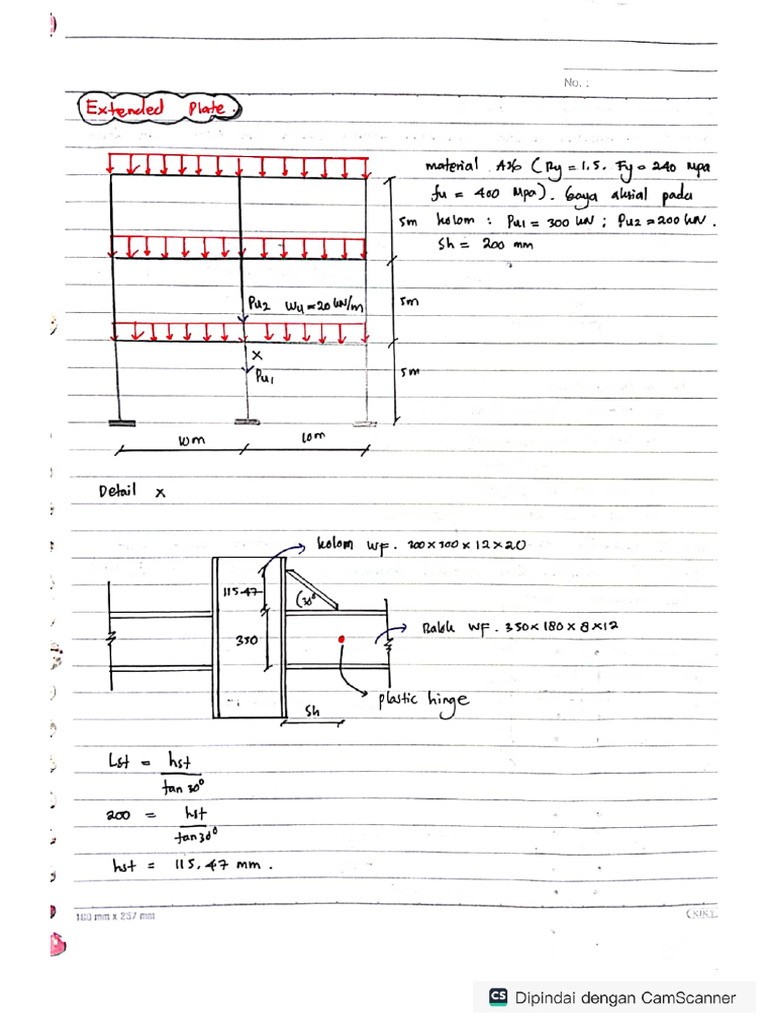 No. :
Extended Plate.
material A36 (Ry = 1,5. Fy = 240 Mpa
fu = 400 Mpa). Gaya aksial pada
kolom : Pu1 = 300 kN ; Pu2 = 200 kN.
Sh = 200 mm
5m
Pu2 Wu = 20 kN/m
5m
X
Pu1
5m
10m 10m
Detail X
kolom WF. 300 x 300 x 12 x 20
115.47
30°
350
Balok WF. 350 x 180 x 8 x 12
plastic hinge
Sh
Lst = hst / tan 30°
200 = hst / tan 30°
hst = 115,47 mm.
180 mm x 257 mm
KIKY
CS Dipindai dengan CamScanner